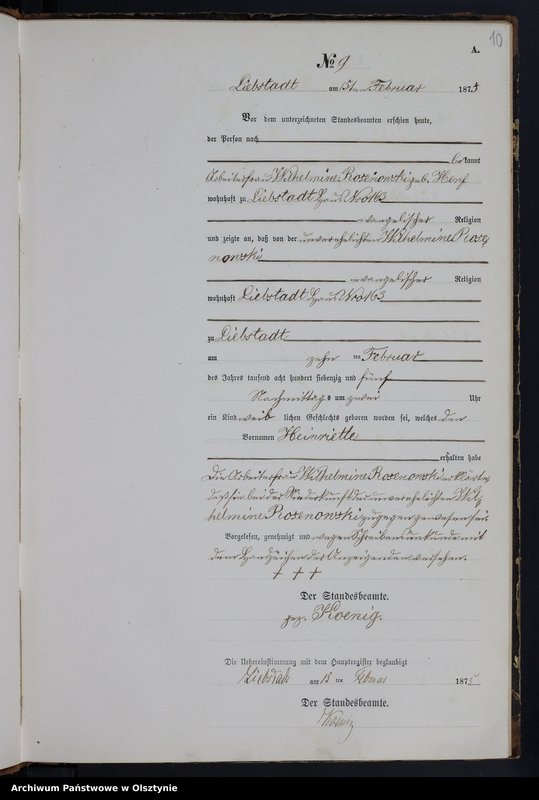 10
A.
No 9
Liebstadt am 15ten Februar 1875
Vor dem unterzeichneten Standesbeamten erschien heute,
der Person nach
bekannt
Arbeiterfrau Wilhelmine Rosenowski geb.
wohnhaft zu Liebstadt Haus Nro 163
evangelischer Religion
und zeigte an, daß von der unverehelichten Wilhelmine Rose
nowski
evangelischer Religion
wohnhaft Liebstadt Haus Nro 163
zu Liebstadt
am zehn ten Februar
des Jahres tausend acht hundert siebenzig und fünf
Nachmittags um zwei Uhr
ein Kind weiblichen Geschlechts geboren worden sei, welches den
Vornamen Heinriette
erhalten habe
Die Arbeiterfrau Wilhelmine Rosenowski erklärte,
daß sie bei der Niederkunft der unverehelichten Wil
helmine Rosenowski zugegen gewesen sei.
Vorgelesen, genehmigt und wegen Schreibensunkunde mit
dem Handzeichen der Anzeigenden versehen.
+ + +
Der Standesbeamte.
gez. Koenig.
Die Uebereinstimmung mit dem Hauptregister beglaubigt
Liebstadt am 15 ten Februar 1875
Der Standesbeamte.
Koenig
Archiwum Państwowe w Olsztynie